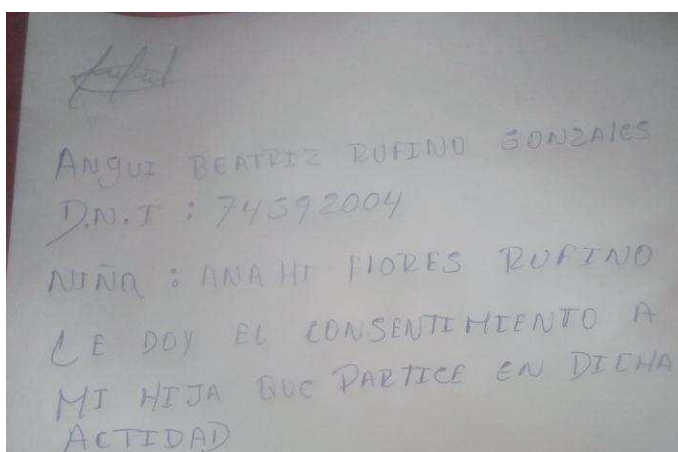 ANGUI BEATRIZ RUFINO GONZALES
D.N.I : 74592004
NIÑA : ANAHI FLORES RUFINO
LE DOY EL CONSENTIMIENTO A
MI HIJA QUE PARTICE EN DICHA
ACTIDAD